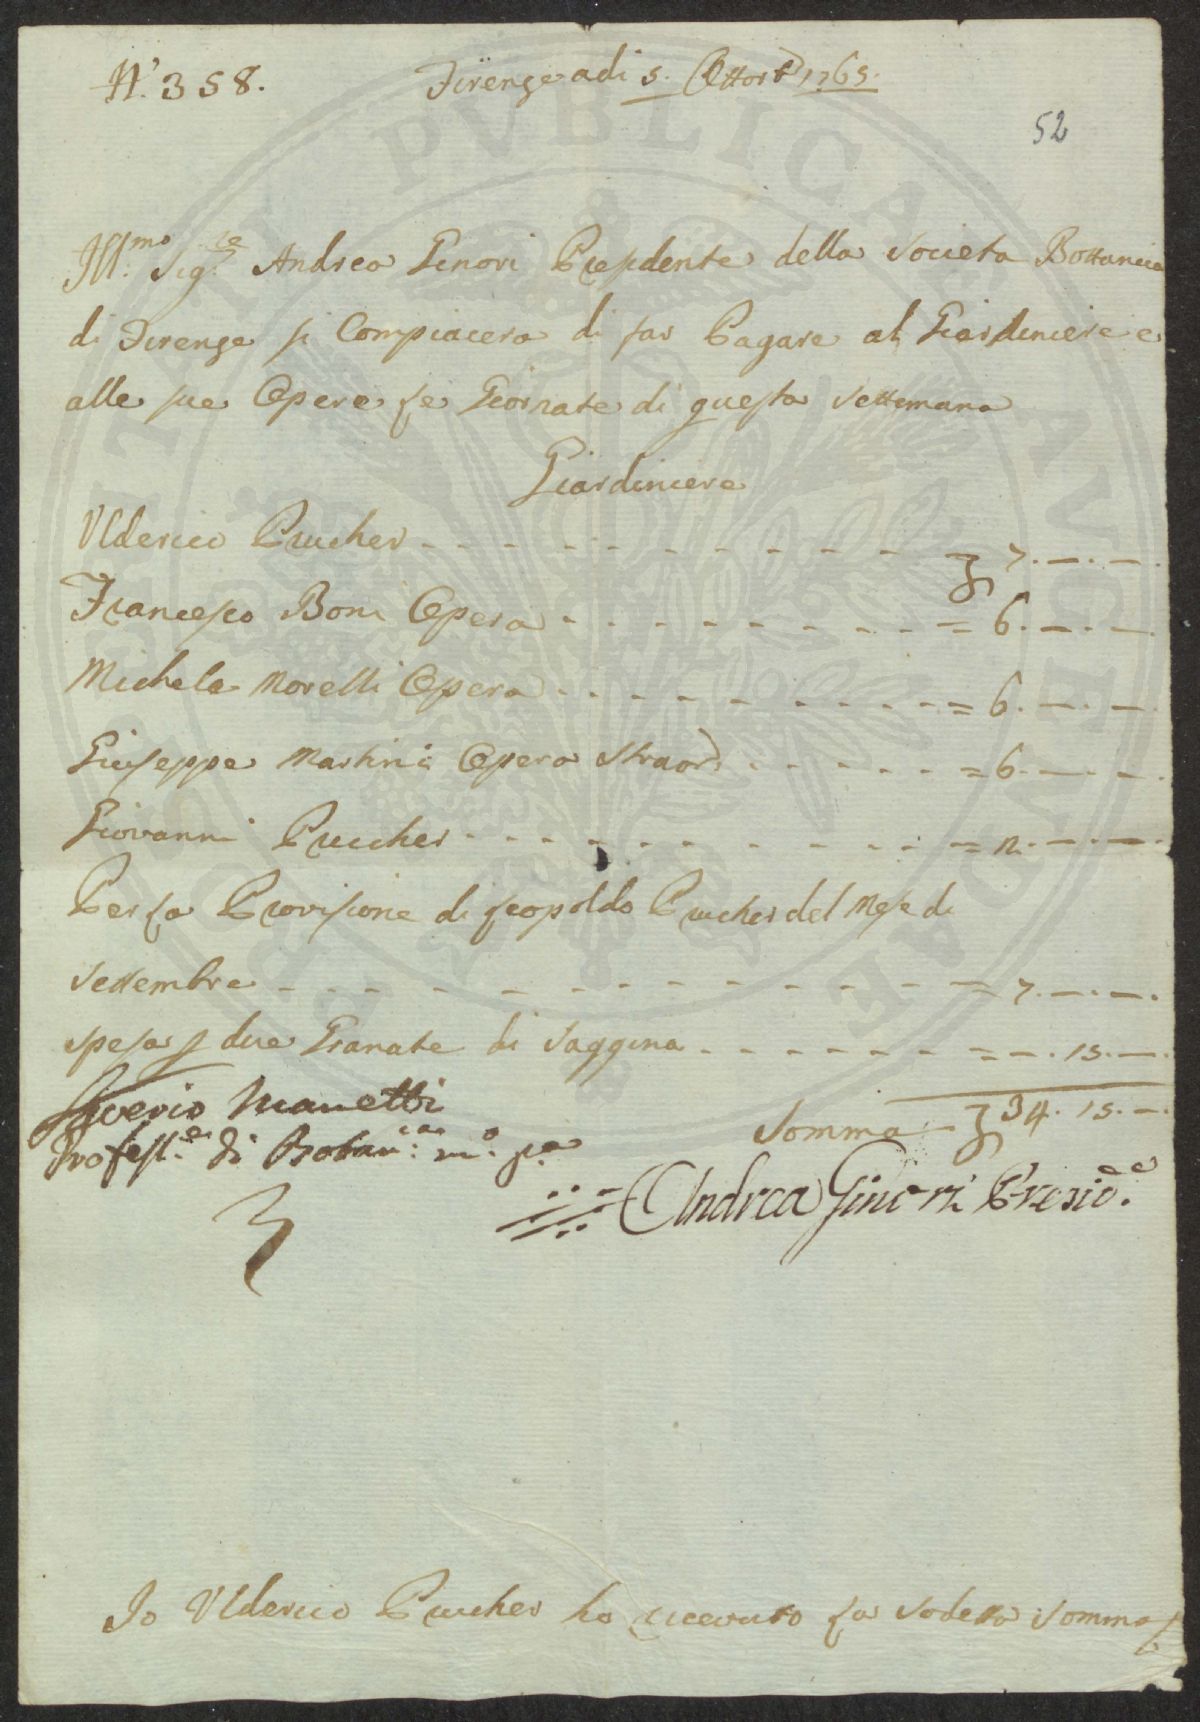 N.° 358.
Firenze adi 5. Ottore 1765.
52
Ill.mo Sig.re Andrea Ginori Presidente della Societa Bottanica
di Firenze si Compiacera di far Pagare al Giardiniere e
alle sue Opere le Giornate di questa Settimana
Giardiniere
Ulderico Prucher - - - - - - - - - - 7. —. —.
Francesco Boni Opera - - - - - - - - = 6. —. —.
Michele Morelli Opera - - - - - - - - = 6. —. —.
Giuseppe Martini Opera Straord. - - - - - = 6. —. —.
Giovanni Prucher - - - - - - - - = 2. —. —.
Per la Provisione di Leopoldo Prucher del Mese di
Settembre - - - - - - - - - - - - = 7. —. —.
Spesa p due Granate di Saggina - - - - - - = —. 15. —.
Somma - 34. 15. —.
Saverio Manetti
Profess.e di Botan.ca m.o p.a
Andrea Ginori Presid.e
Io Ulderico Prucher ho ricevuto la Sodetta Somma